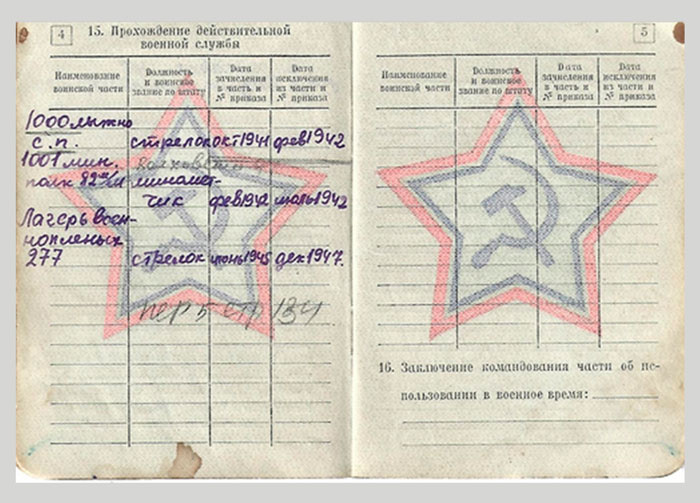 4 15. Прохождение действительной
военной службы
Наименование воинской части
Должность и воинское звание по штату
Дата зачисления в часть и № приказа
Дата исключения из части и № приказа
1000 лыжно
с.п. стрелок окт 1941 фев 1942
1001 мин.
полк 82 м/м миномет-
чик фев 1942 июль 1942
Лагерь воен-
нопленых
277 стрелок июнь 1945 дек 1947.
5
Наименование воинской части
Должность и воинское звание по штату
Дата зачисления в часть и № приказа
Дата исключения из части и № приказа
16. Заключение командования части об ис-
пользовании в военное время: